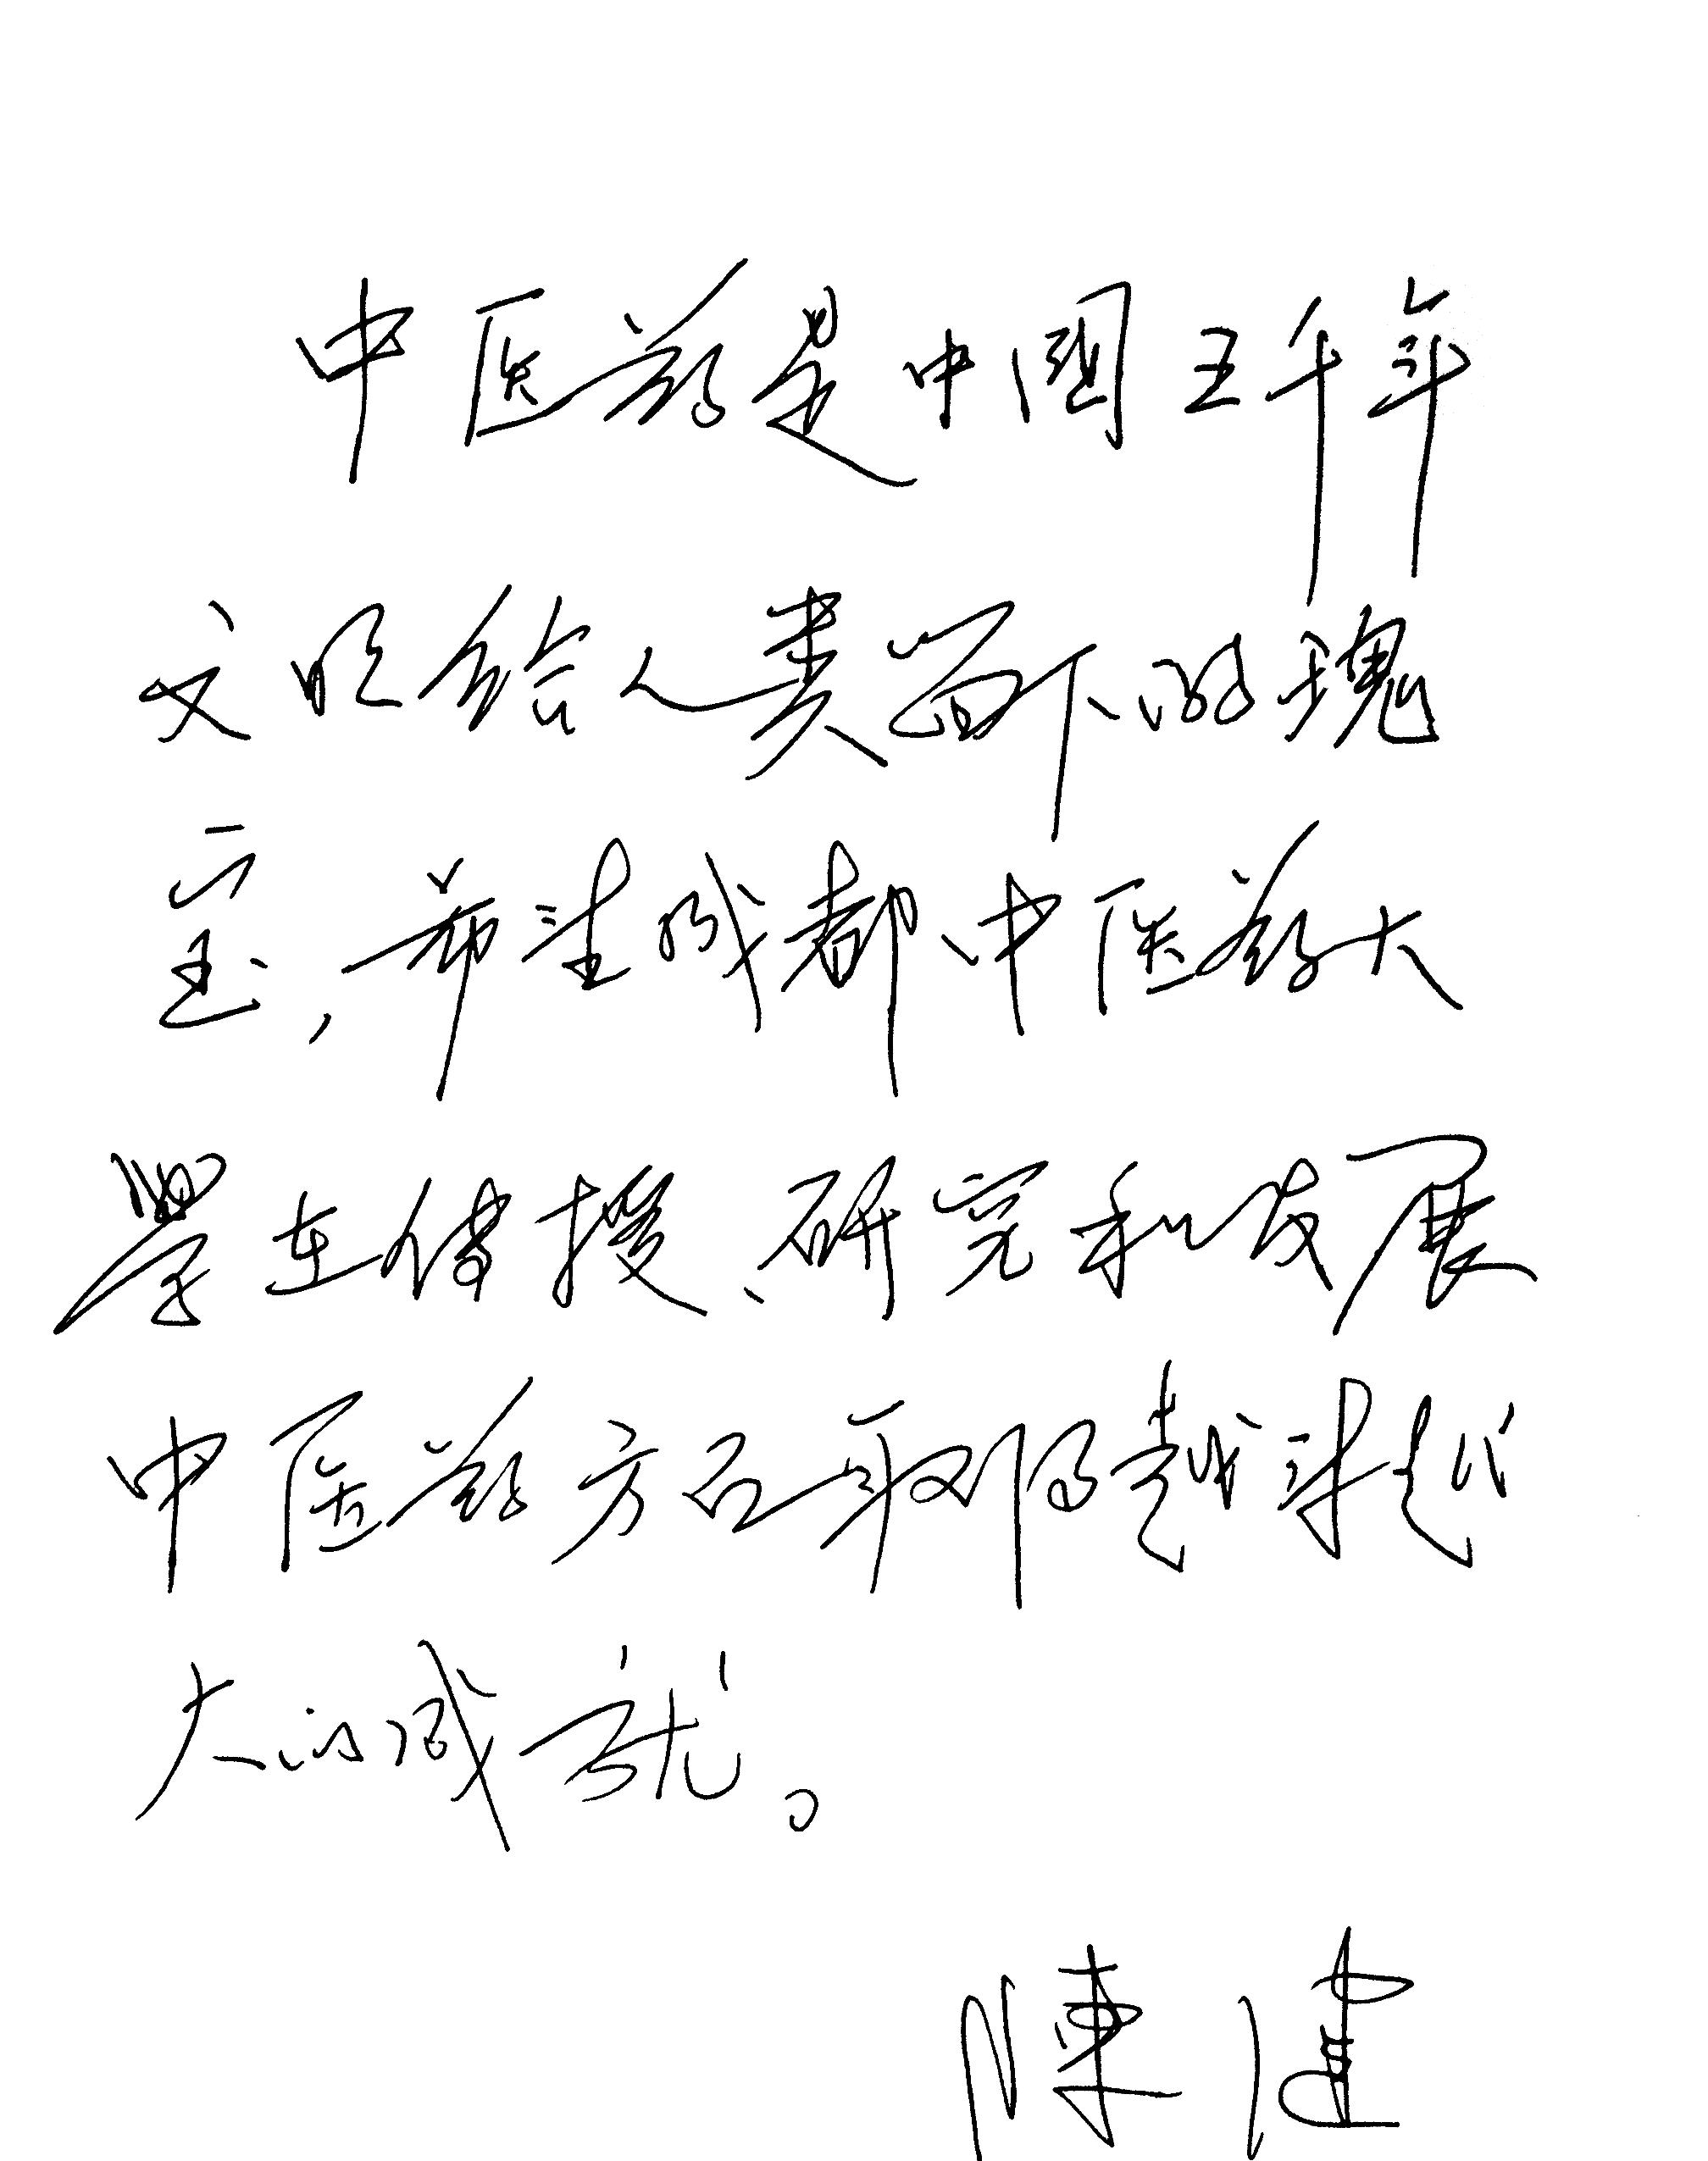 中医药是中國五千年
文明给人类留下的瑰
宝，希望成都中医药大
學在传授、研究和发展
中医药方面取得越来越
大的成就。
陳健